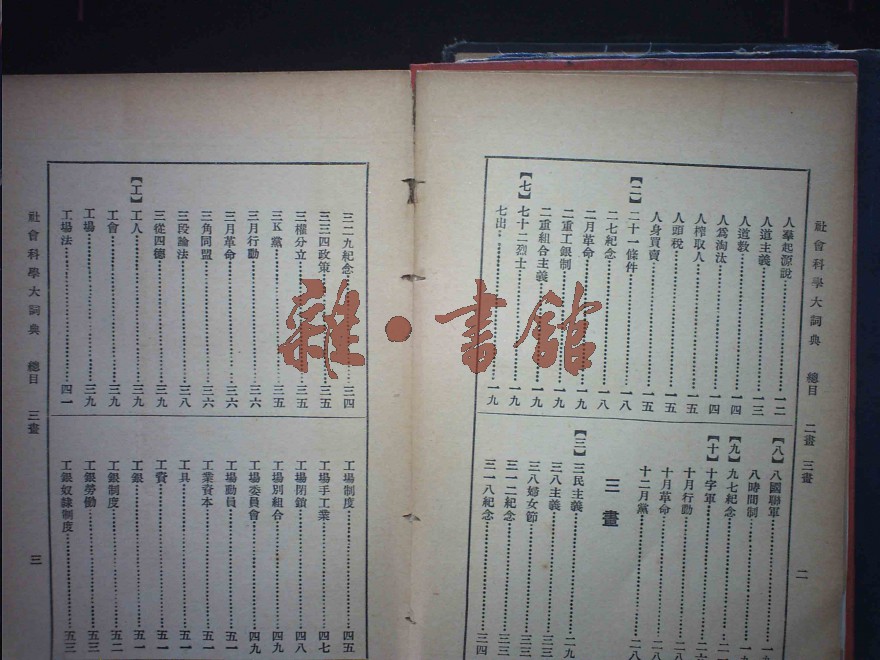 社會科學大詞典 總目 二畫 三畫
二
人羣起源說……一二
人道主義……一三
人道教……一四
人爲淘汰……一四
人榨取人……一五
人頭稅……一五
人身買賣……一五
【二】二十一條件……一八
二七紀念……一八
二月革命……一九
二重工銀制……一九
二重組合主義……一九
【七】七十二烈士……一九
七出……一九
【八】八國聯軍
八時間制
【九】九七紀念
【十】十字軍
十月行動
十月革命
十二月黨……二八
三畫
【三】三民主義……二九
三八主義……三三
三八婦女節……三三
三一二紀念……三三
三一八紀念……三四
三二九紀念……三四
三三四政策……三五
三權分立……三五
三K黨……三五
三月行動……三六
三月革命……三六
三角同盟……三六
三段論法……三八
三從四德……三九
【工】工人……三九
工會……三九
工場……三九
工場法……四一
工場制度……四五
工場手工業……四七
工場閉鎖……四八
工場別組合……四九
工場委員會……四九
工場動員……五一
工業資本……五一
工具……五一
工資……五一
工銀……五一
工銀制度……五二
工銀勞働……五三
工銀奴隸制度……五三
社會科學大詞典 總目 三畫
三
雜·書館